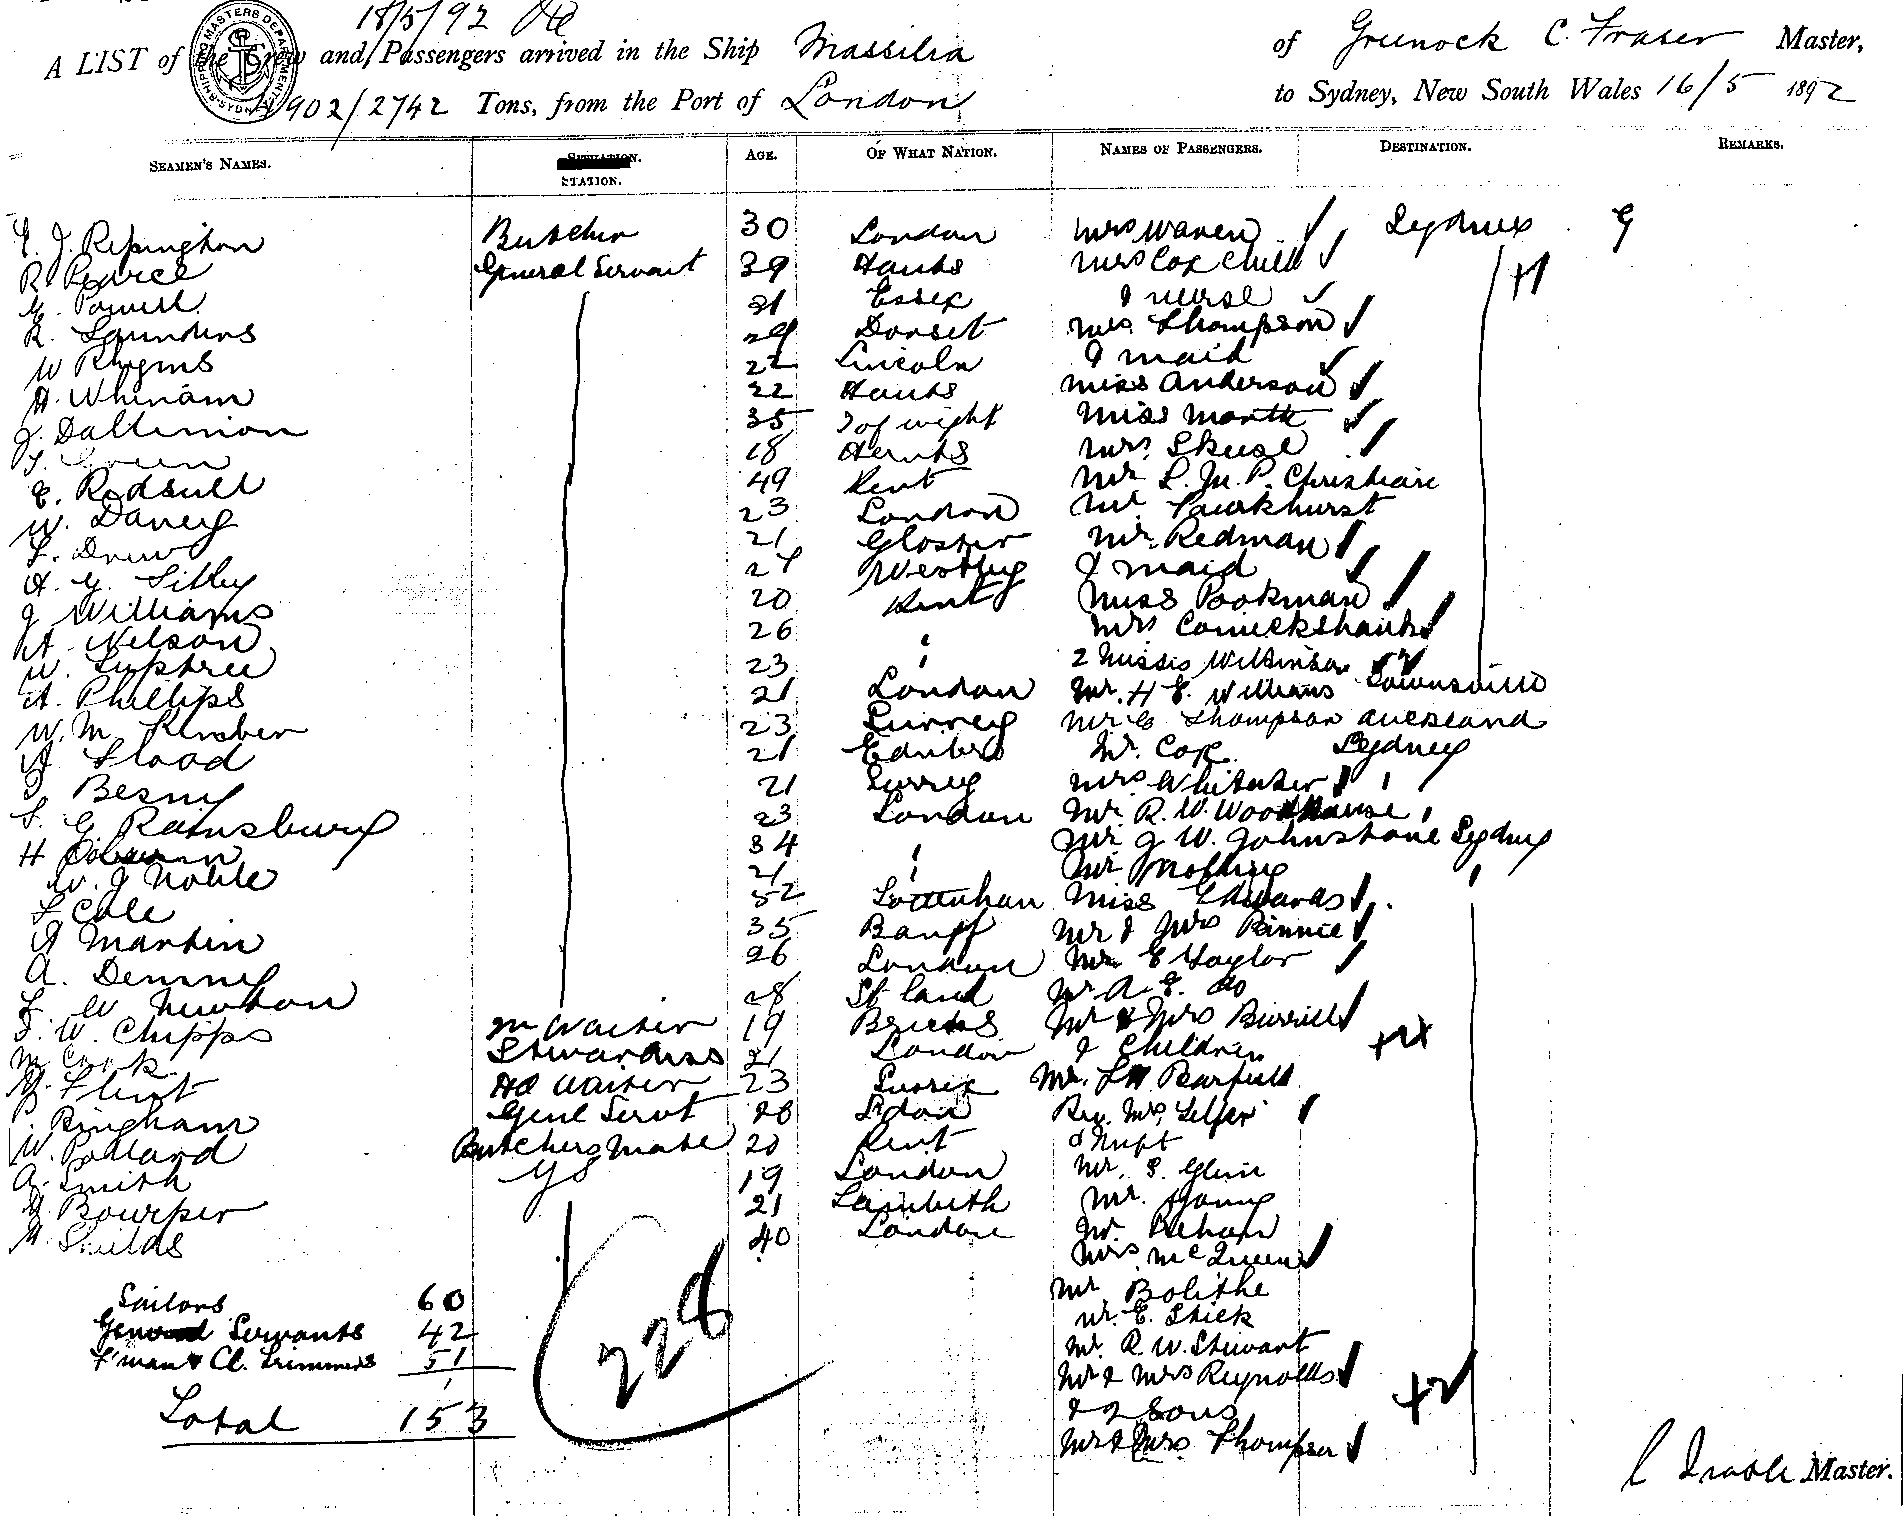 18/5/92
A LIST of the Crew and Passengers arrived in the Ship Massilia of Greenock C. Fraser Master,
4902/2742 Tons, from the Port of London to Sydney, New South Wales 16/5 1892
SEAMEN'S NAMES. STATION. AGE. OF WHAT NATION. NAMES OF PASSENGERS. DESTINATION. REMARKS.
E. J. Repington Butcher 30 London Mrs Waren Sydney
R. Pearce General Servant 39 Hants Mrs Cox Child
G. Powell 21 Essex & nurse
R. Saunders 29 Dorset Mrs Thompson
W 22 Lincoln & maid
A. Whenam 22 Hants Miss Anderson
J. Dallimon 35 I of wight Miss
18 Hants Mrs. Skuse
E. Redsull 49 Kent Mr L. M. P. Christian
W. Daney 23 London Mr Parkhurst
F. Drew 21 Gloster Mr. Redman
A. G. 24 & maid
J Williams 20 Kent Miss Pookman
A. Nelson 26 " Mrs
W. 23 " 2 Misses Wilkinson
A. Phillips 21 London Mr. H E. Williams Townsville
W. M. 23 Surrey Mr C Thompson Auckland
A Flood 21 Edinbro Mr. Cox Sydney
Besny 21 Surrey Mrs Whitaker "
S. G. Rainsbury 23 London Mr R. W. Woodhouse "
H 34 " Mr J W. Johnstone Sydney
W. J Noble 21 " Mr "
F Cole 52 Tottenham Miss Edwards
A Martin 35 Banff Mr & Mrs Binnie
A. Denny 26 London Mr E Taylor
F. W Newton 28 Mr A. E. do
F. W. Chipps M Waiter 19 Mr & Mrs Burrill
M. Cook Stewardess 21 London & Children
Flint Hd Waiter 23 Sussex Mr.
Bingham Genl Servt 20 Rev. Mr
W. Pollard Butchers Mate 20 Kent
A. Smith GS 19 London Mr. S. Glen
Bowper 21 Lambeth Mr. Young
Shields 40 London Mr.
Mrs McQueen
Mr Bolithe
Sailors 60
Mr. E. Stick
General Servants 42
Mr. R. W. Stewart
F'man & Cl. Trimmers 51
Mr & Mrs Reynolds
228
Total 153
& 2 Sons
Mr & Mrs Thompson
C Fraser Master.